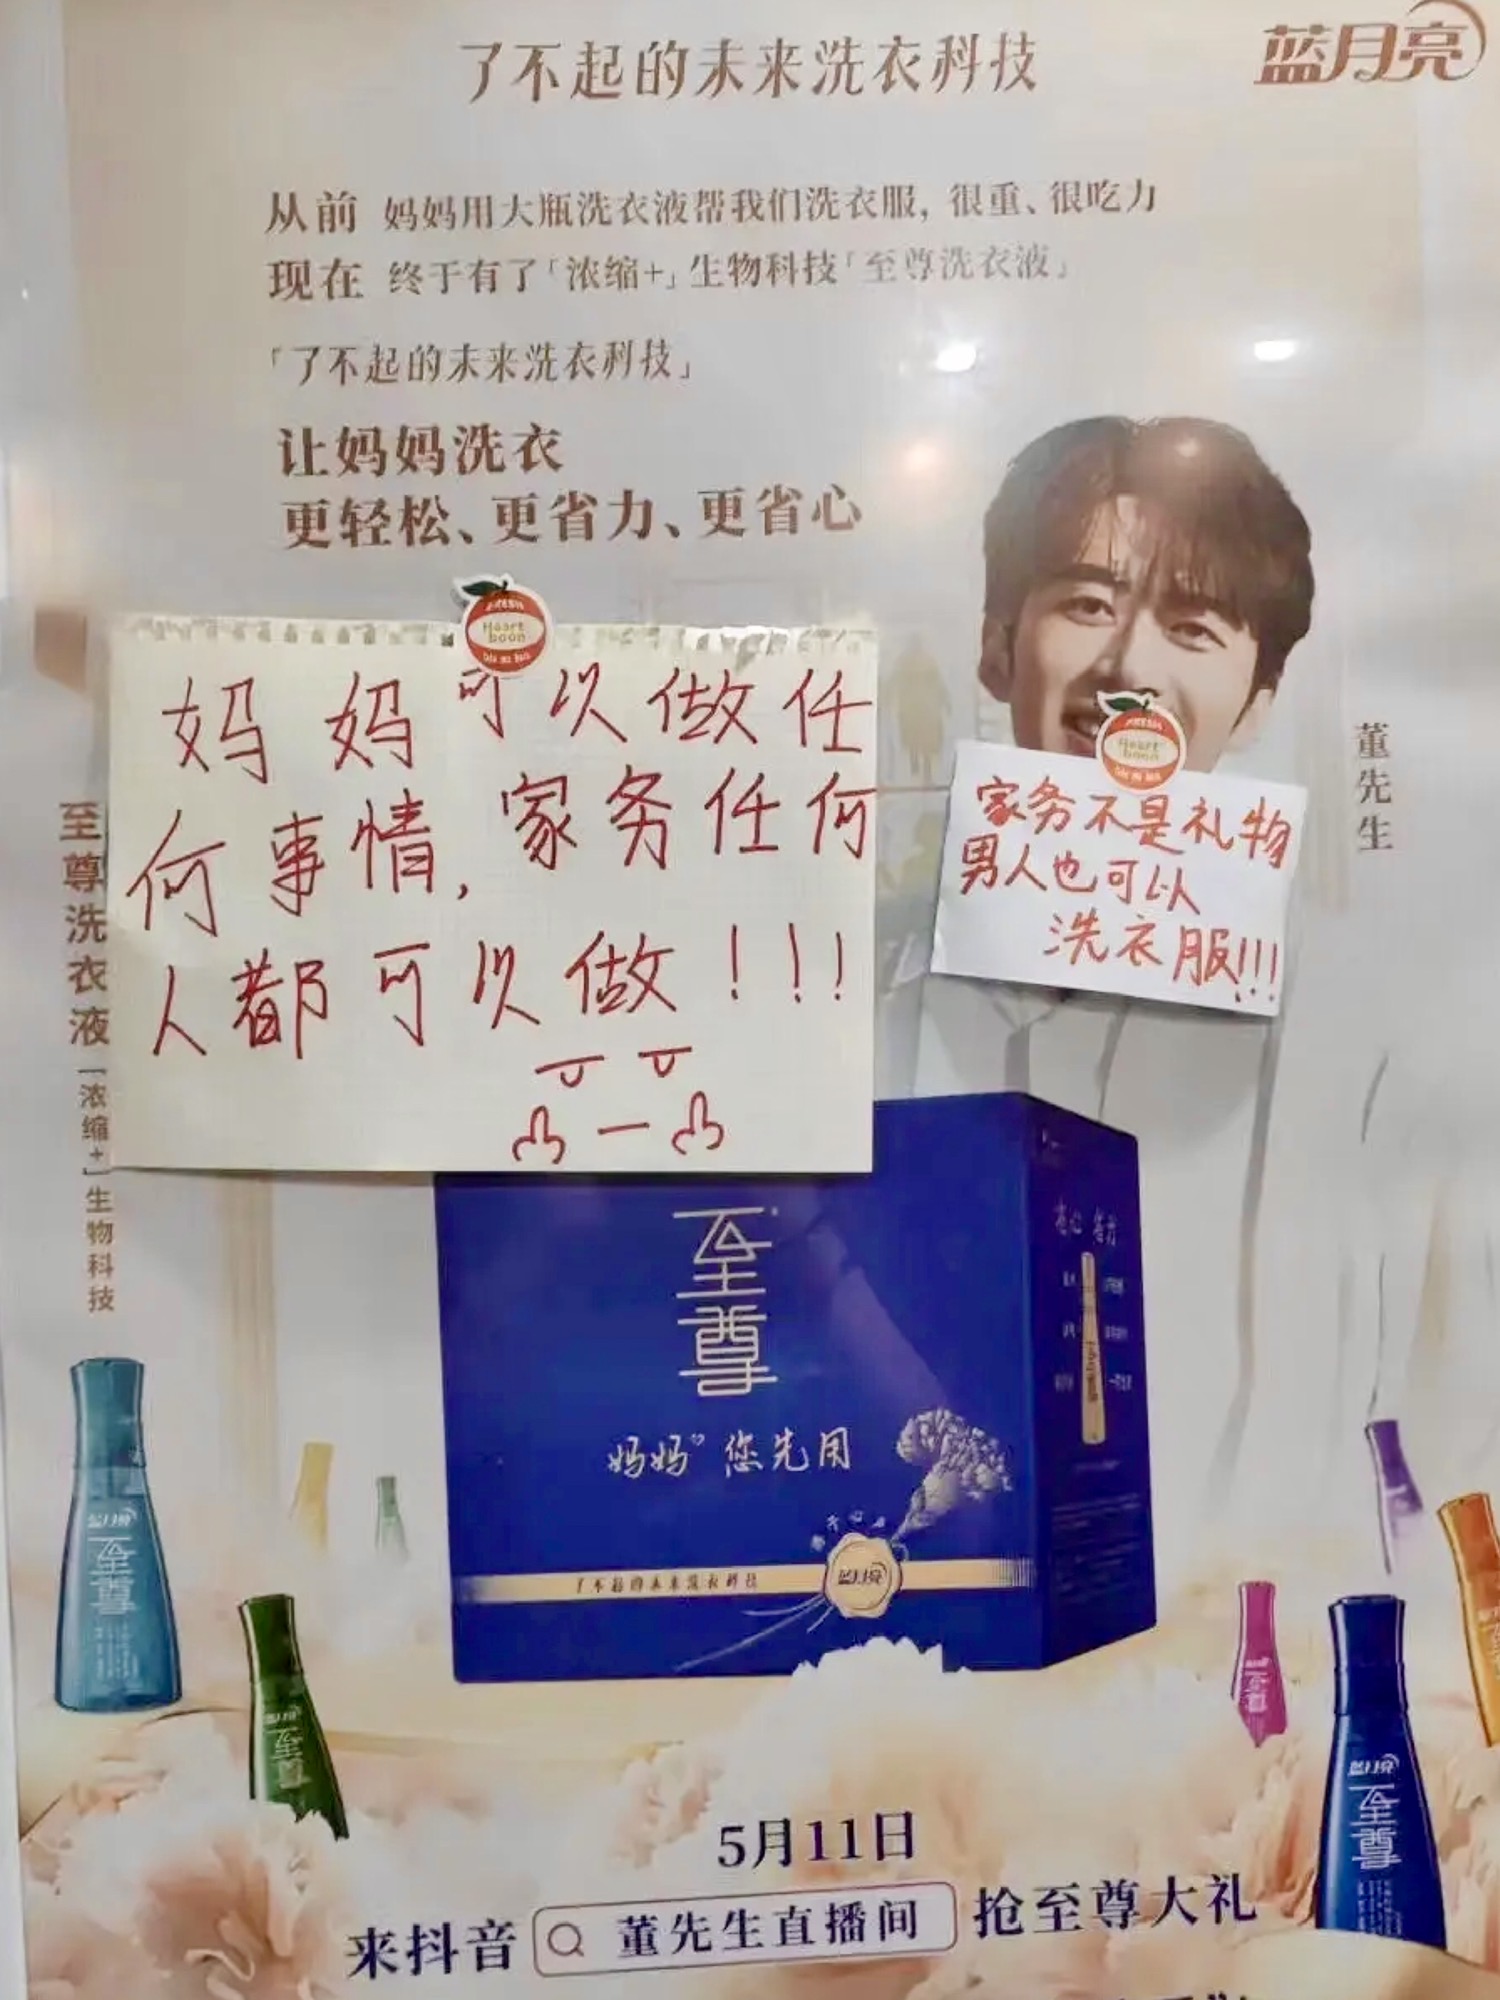 了不起的未来洗衣科技
蓝月亮
从前 妈妈用大瓶洗衣液帮我们洗衣服，很重、很吃力
现在 终于有了「浓缩+」生物科技「至尊洗衣液」
「了不起的未来洗衣科技」
让妈妈洗衣
更轻松、更省力、更省心
FRESH
Heart
boon
妈妈可以做任
何事情，家务任何
人都可以做！！！
FRESH
Heart
boon
家务不是礼物
男人也可以
洗衣服!!!
董先生
至尊洗衣液「浓缩+」生物科技
至尊
妈妈 您先用
了不起的未来洗衣科技
蓝月亮
省心 省力
蓝月亮
至尊
蓝月亮
至尊
至尊
蓝月亮
至尊
5月11日
来抖音 董先生直播间 抢至尊大礼